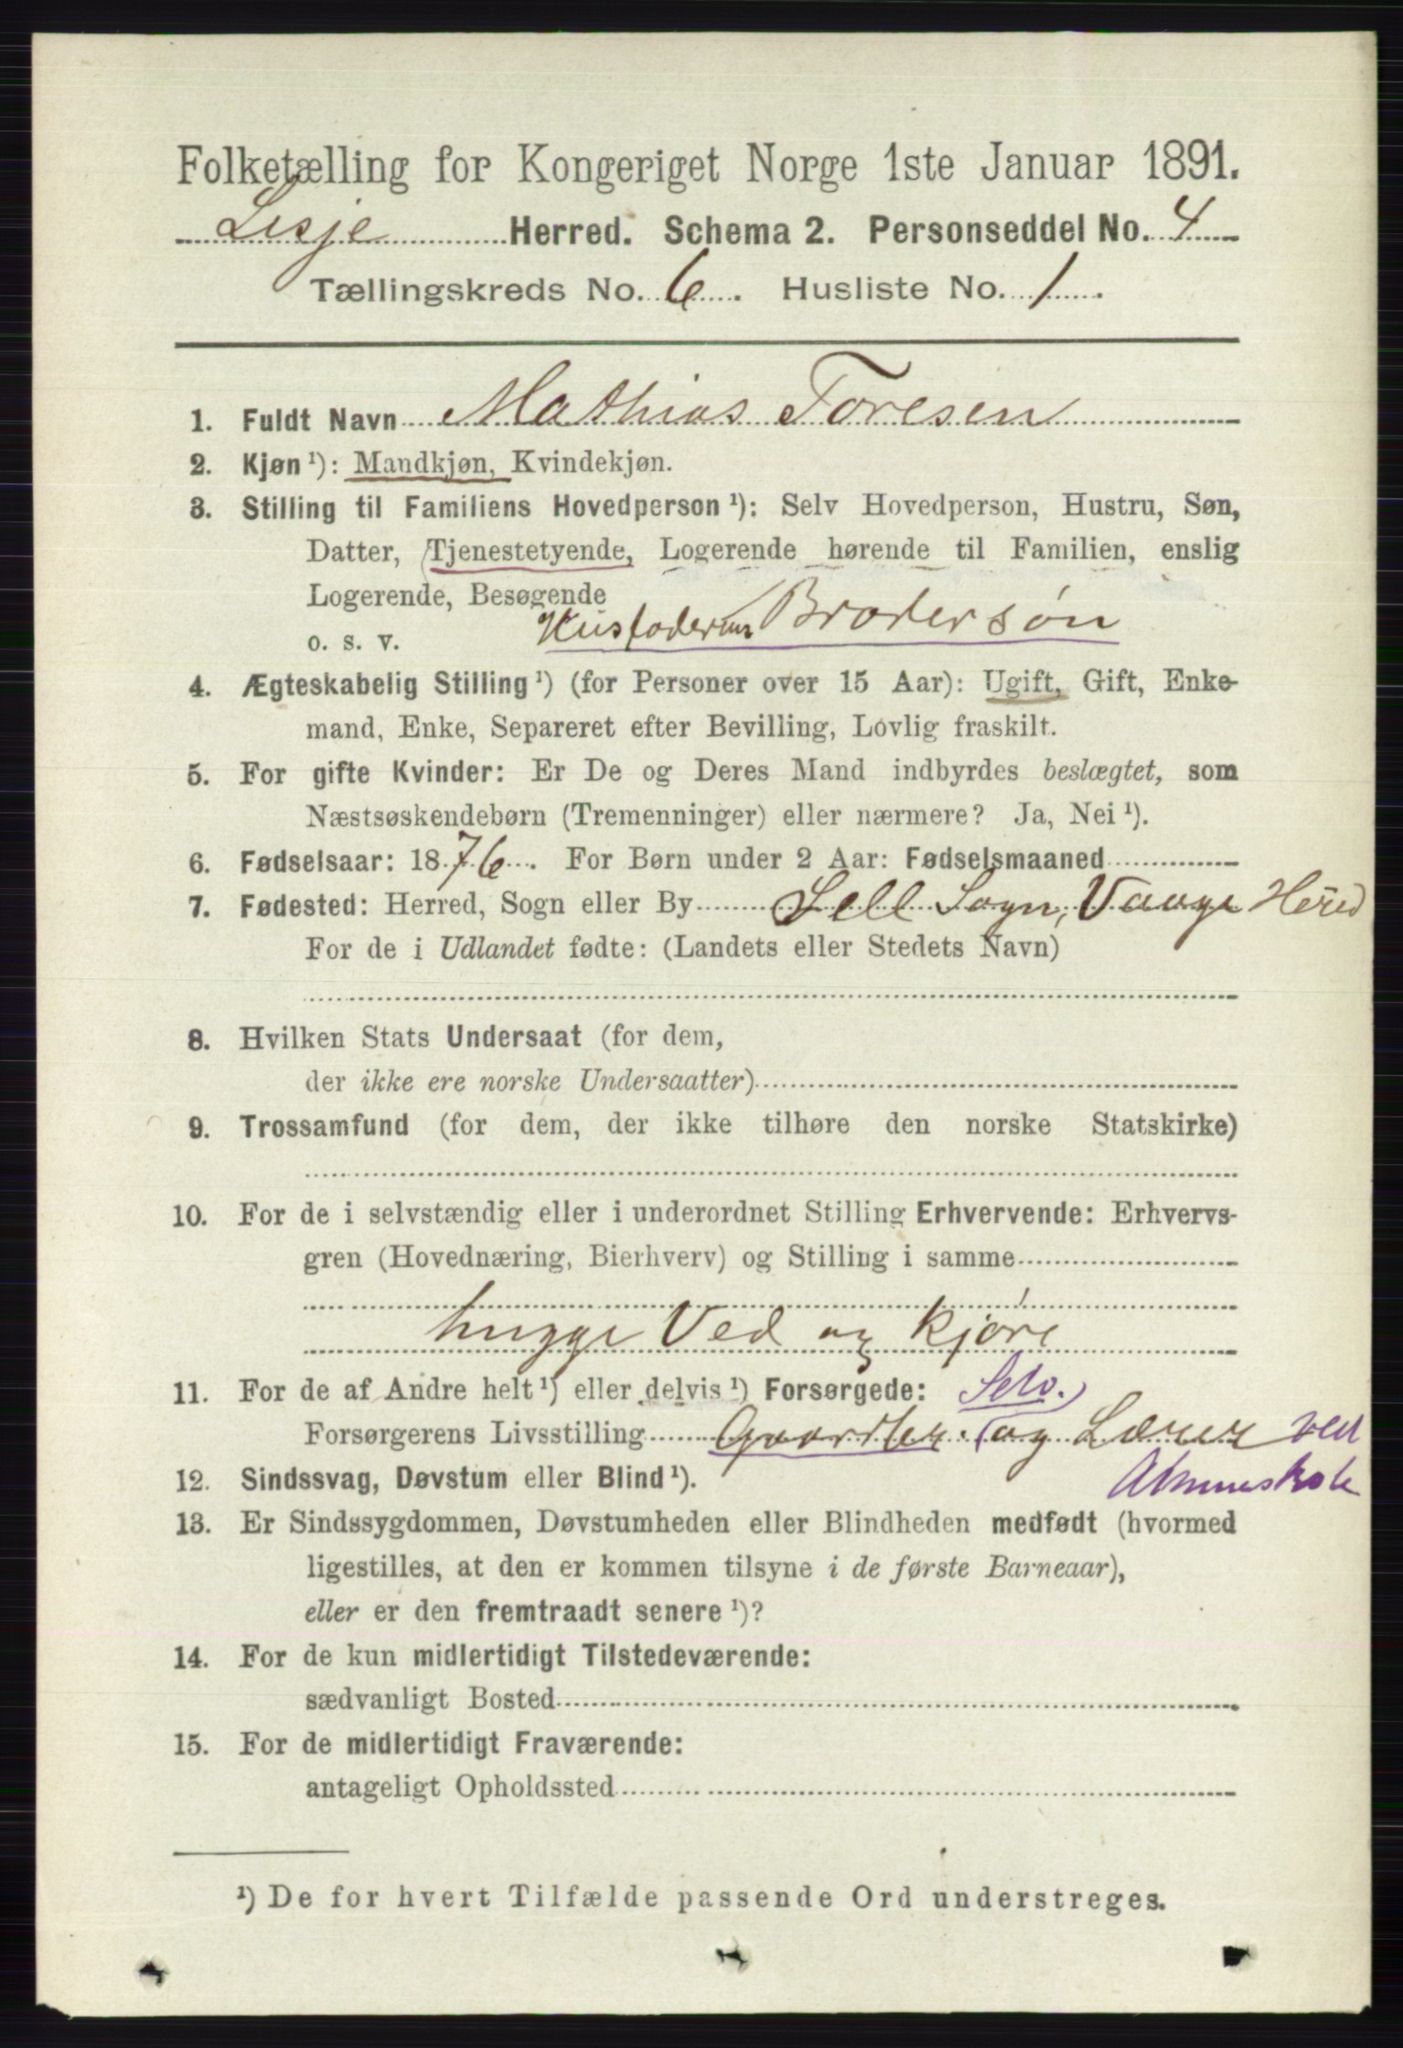 Folketælling for Kongeriget Norge 1ste Januar 1891.
Lesje Herred. Schema 2. Personseddel No. 4
Tællingskreds No. 6. Husliste No. 1.
1. Fuldt Navn Mathias Toresen
2. Kjøn ¹): Mandkjøn, Kvindekjøn.
3. Stilling til Familiens Hovedperson ¹): Selv Hovedperson, Hustru, Søn,
Datter, Tjenestetyende, Logerende hørende til Familien, enslig
Logerende, Besøgende
o. s. v. Husfaderens Brodersøn
4. Ægteskabelig Stilling ¹) (for Personer over 15 Aar): Ugift, Gift, Enke-
mand, Enke, Separeret efter Bevilling, Lovlig fraskilt.
5. For gifte Kvinder: Er De og Deres Mand indbyrdes beslægtet, som
Næstsøskendebørn (Tremenninger) eller nærmere? Ja, Nei ¹).
6. Fødselsaar: 1876. For Børn under 2 Aar: Fødselsmaaned
7. Fødested: Herred, Sogn eller By Sell Sogn, Vaage Herred
For de i Udlandet fødte: (Landets eller Stedets Navn)
8. Hvilken Stats Undersaat (for dem,
der ikke ere norske Undersaatter)
9. Trossamfund (for dem, der ikke tilhøre den norske Statskirke)
10. For de i selvstændig eller i underordnet Stilling Erhvervende: Erhvervs-
gren (Hovednæring, Bierhverv) og Stilling i samme
hugge Ved og kjøre
11. For de af Andre helt ¹) eller delvis ¹) Forsørgede: Selv.
Forsørgerens Livsstilling og Lærer ved
Almueskole
12. Sindssvag, Døvstum eller Blind ¹).
13. Er Sindssygdommen, Døvstumheden eller Blindheden medfødt (hvormed
ligestilles, at den er kommen tilsyne i de første Barneaar),
eller er den fremtraadt senere ¹)?
14. For de kun midlertidigt Tilstedeværende:
sædvanligt Bosted
15. For de midlertidigt Fraværende:
antageligt Opholdssted
¹) De for hvert Tilfælde passende Ord understreges.